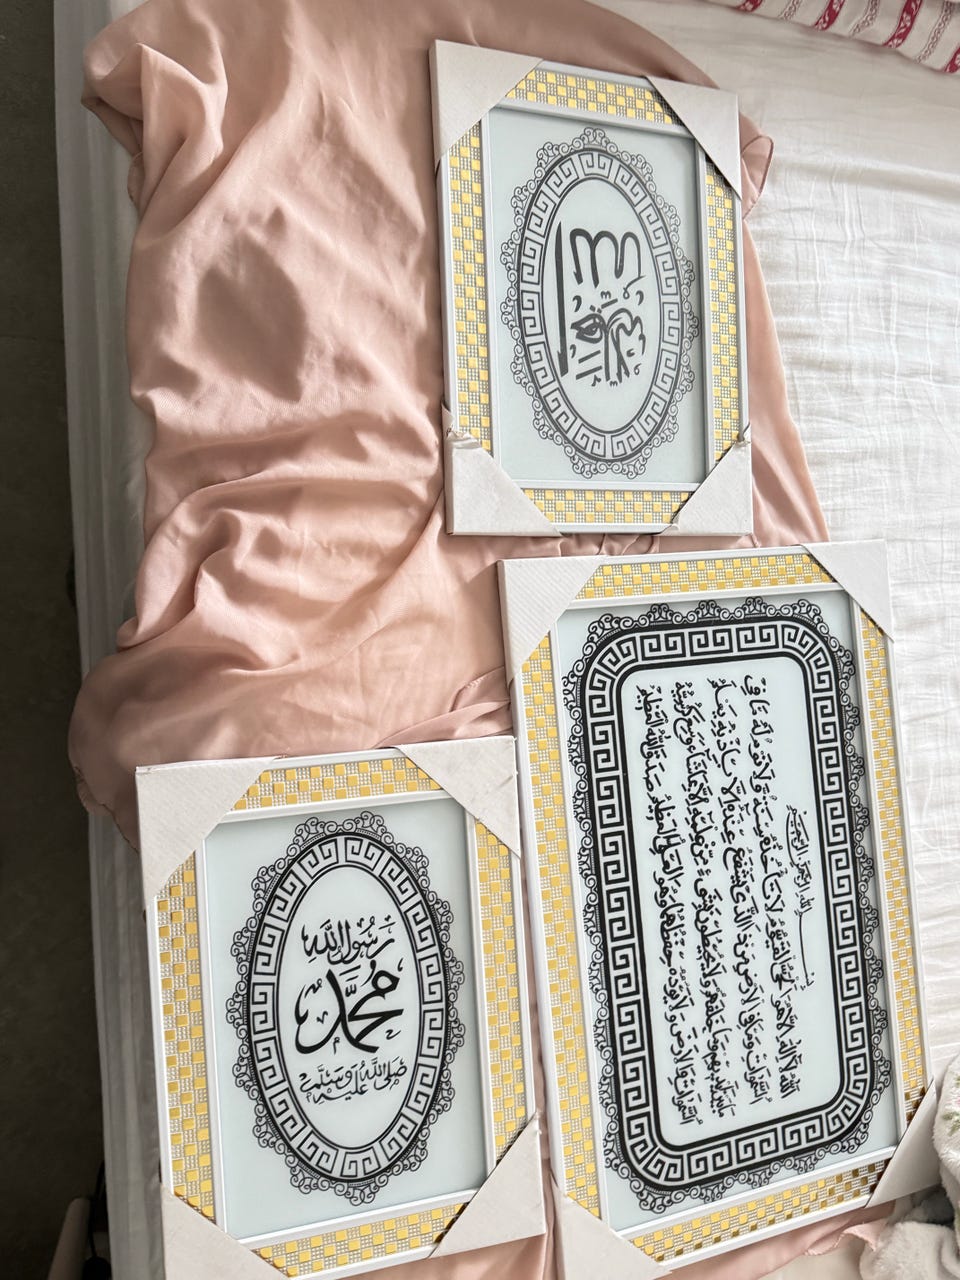 رسول الله
محمد
صلى الله عليه وسلم
بسم الله الرحمن الرحيم
الله لا إله إلا هو الحي القيوم لا تأخذه سنة ولا نوم له ما في
السموات وما في الأرض من ذا الذي يشفع عنده إلا بإذنه يعلم
ما بين أيديهم وما خلفهم ولا يحيطون بشيء من علمه إلا بما شاء وسع كرسيه
السموات والأرض ولا يؤده حفظهما وهو العلي العظيم صدق الله العظيم